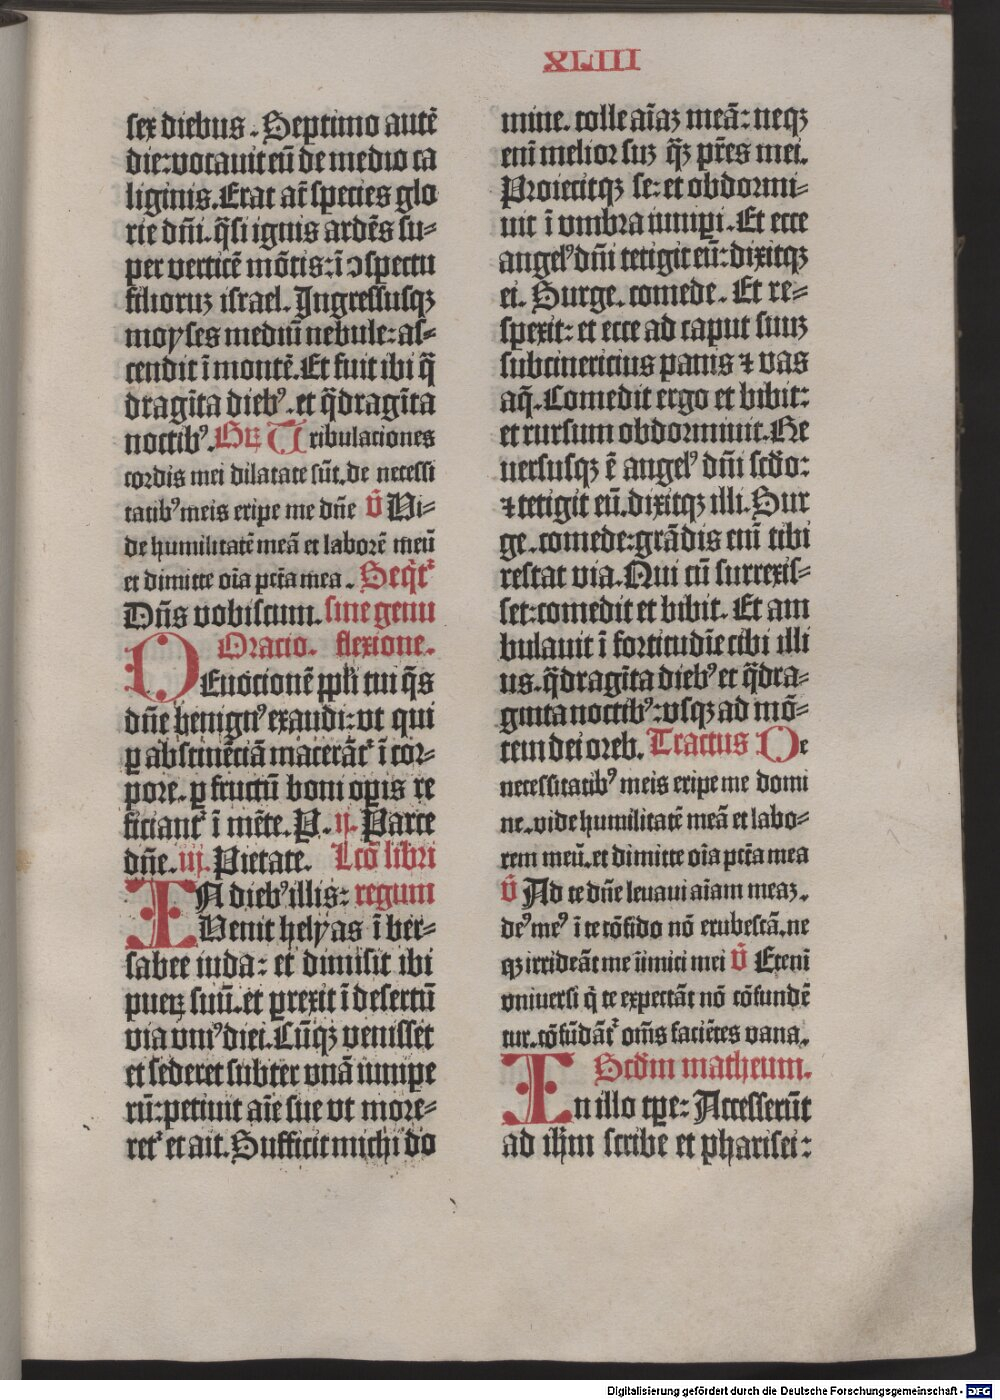 XLIII
sex diebus. Septimo autē
die: vocauit eū de medio ca
liginis. Erat at̄ species glo
rie dn̄i. q̄si ignis ardēs su⸗
per verticē mōtis: ī ↄspectu
filioruꝫ israel. Ingressusqꝫ
moyses mediū nebule: as⸗
cendit ī montē. Et fuit ibi q̄
dragīta diebꝰ. et q̄dragīta
noctibꝰ. GR Tribulaciones
cordis mei dilatate sūt. de necessi
tatibꝰ meis eripe me dn̄e v̄ Vi⸗
de humilitatē meā et laborē meū
et dimitte oīa pctā mea. Seqt̄ᷣ
Dn̄s vobiscum. sine genu
Oracio. flexione.
DEuocionē ppl̄i tui q̄s
dn̄e benignꝰ exaudi: vt qui
ꝑ abstinēciā macerātᷣ ī cor⸗
pore. ꝑ fructū boni opis re
ficiantᷣ ī mēte. P. ij. Parce
dn̄e. iij. Pietate. Lcō libri
IN diebꝰ illis: regum
Venit helyas ī ber⸗
sabee iuda: et dimisit ibi
pueꝝ suū. et ꝑrexit ī desertū
via vniꝰ diei. Cūqꝫ venisset
et sederet subter vnā iunipe
rū: petiuit aīe sue vt more⸗
retᷣ et ait. Sufficit michi do
mine. tolle aīaꝫ meā: neqꝫ
enī melior suꝫ q̄ꝫ pr̄es mei.
Proiecitqꝫ se: et obdormi⸗
uit ī vmbra iunipi. Et ecce
angelꝰ dn̄i tetigit eū: dixitqꝫ
ei. Surge. comede. Et re⸗
spexit: et ecce ad caput suuꝫ
subcinericius panis ⁊ vas
aq̄. Comedit ergo et bibit:
et rursum obdormiuit. Re
uersusqꝫ ē angelꝰ dn̄i scd̄o:
⁊ tetigit eū. dixitqꝫ illi. Sur
ge. comede: grādis enī tibi
restat via. Qui cū surrexis⸗
set: comedit et bibit. Et am
bulauit ī fortitudīe cibi illi
us. q̄dragīta diebꝰ et q̄dra⸗
ginta noctibꝰ: vsqꝫ ad mō⸗
tem dei oreb. Tractus De
necessitatibꝰ meis eripe me domi
ne. vide humilitatē meā et labo⸗
rem meū. et dimitte oīa pctā mea
v̄ Ad te dn̄e leuaui aīam meaꝫ.
deꝰ meꝰ ī te cōfido nō erubescā. ne
qꝫ irrideāt me iīmici mei v̄ Etenī
vniuersi q̇ te expectāt nō cōfundē
tur. cōfūdātᷣ om̄s faciētes vana.
Scd̄m matheum.
In illo tpe: Accesserūt
ad ih̄m scribe et pharisei:
Digitalisierung gefördert durch die Deutsche Forschungsgemeinschaft - DFG